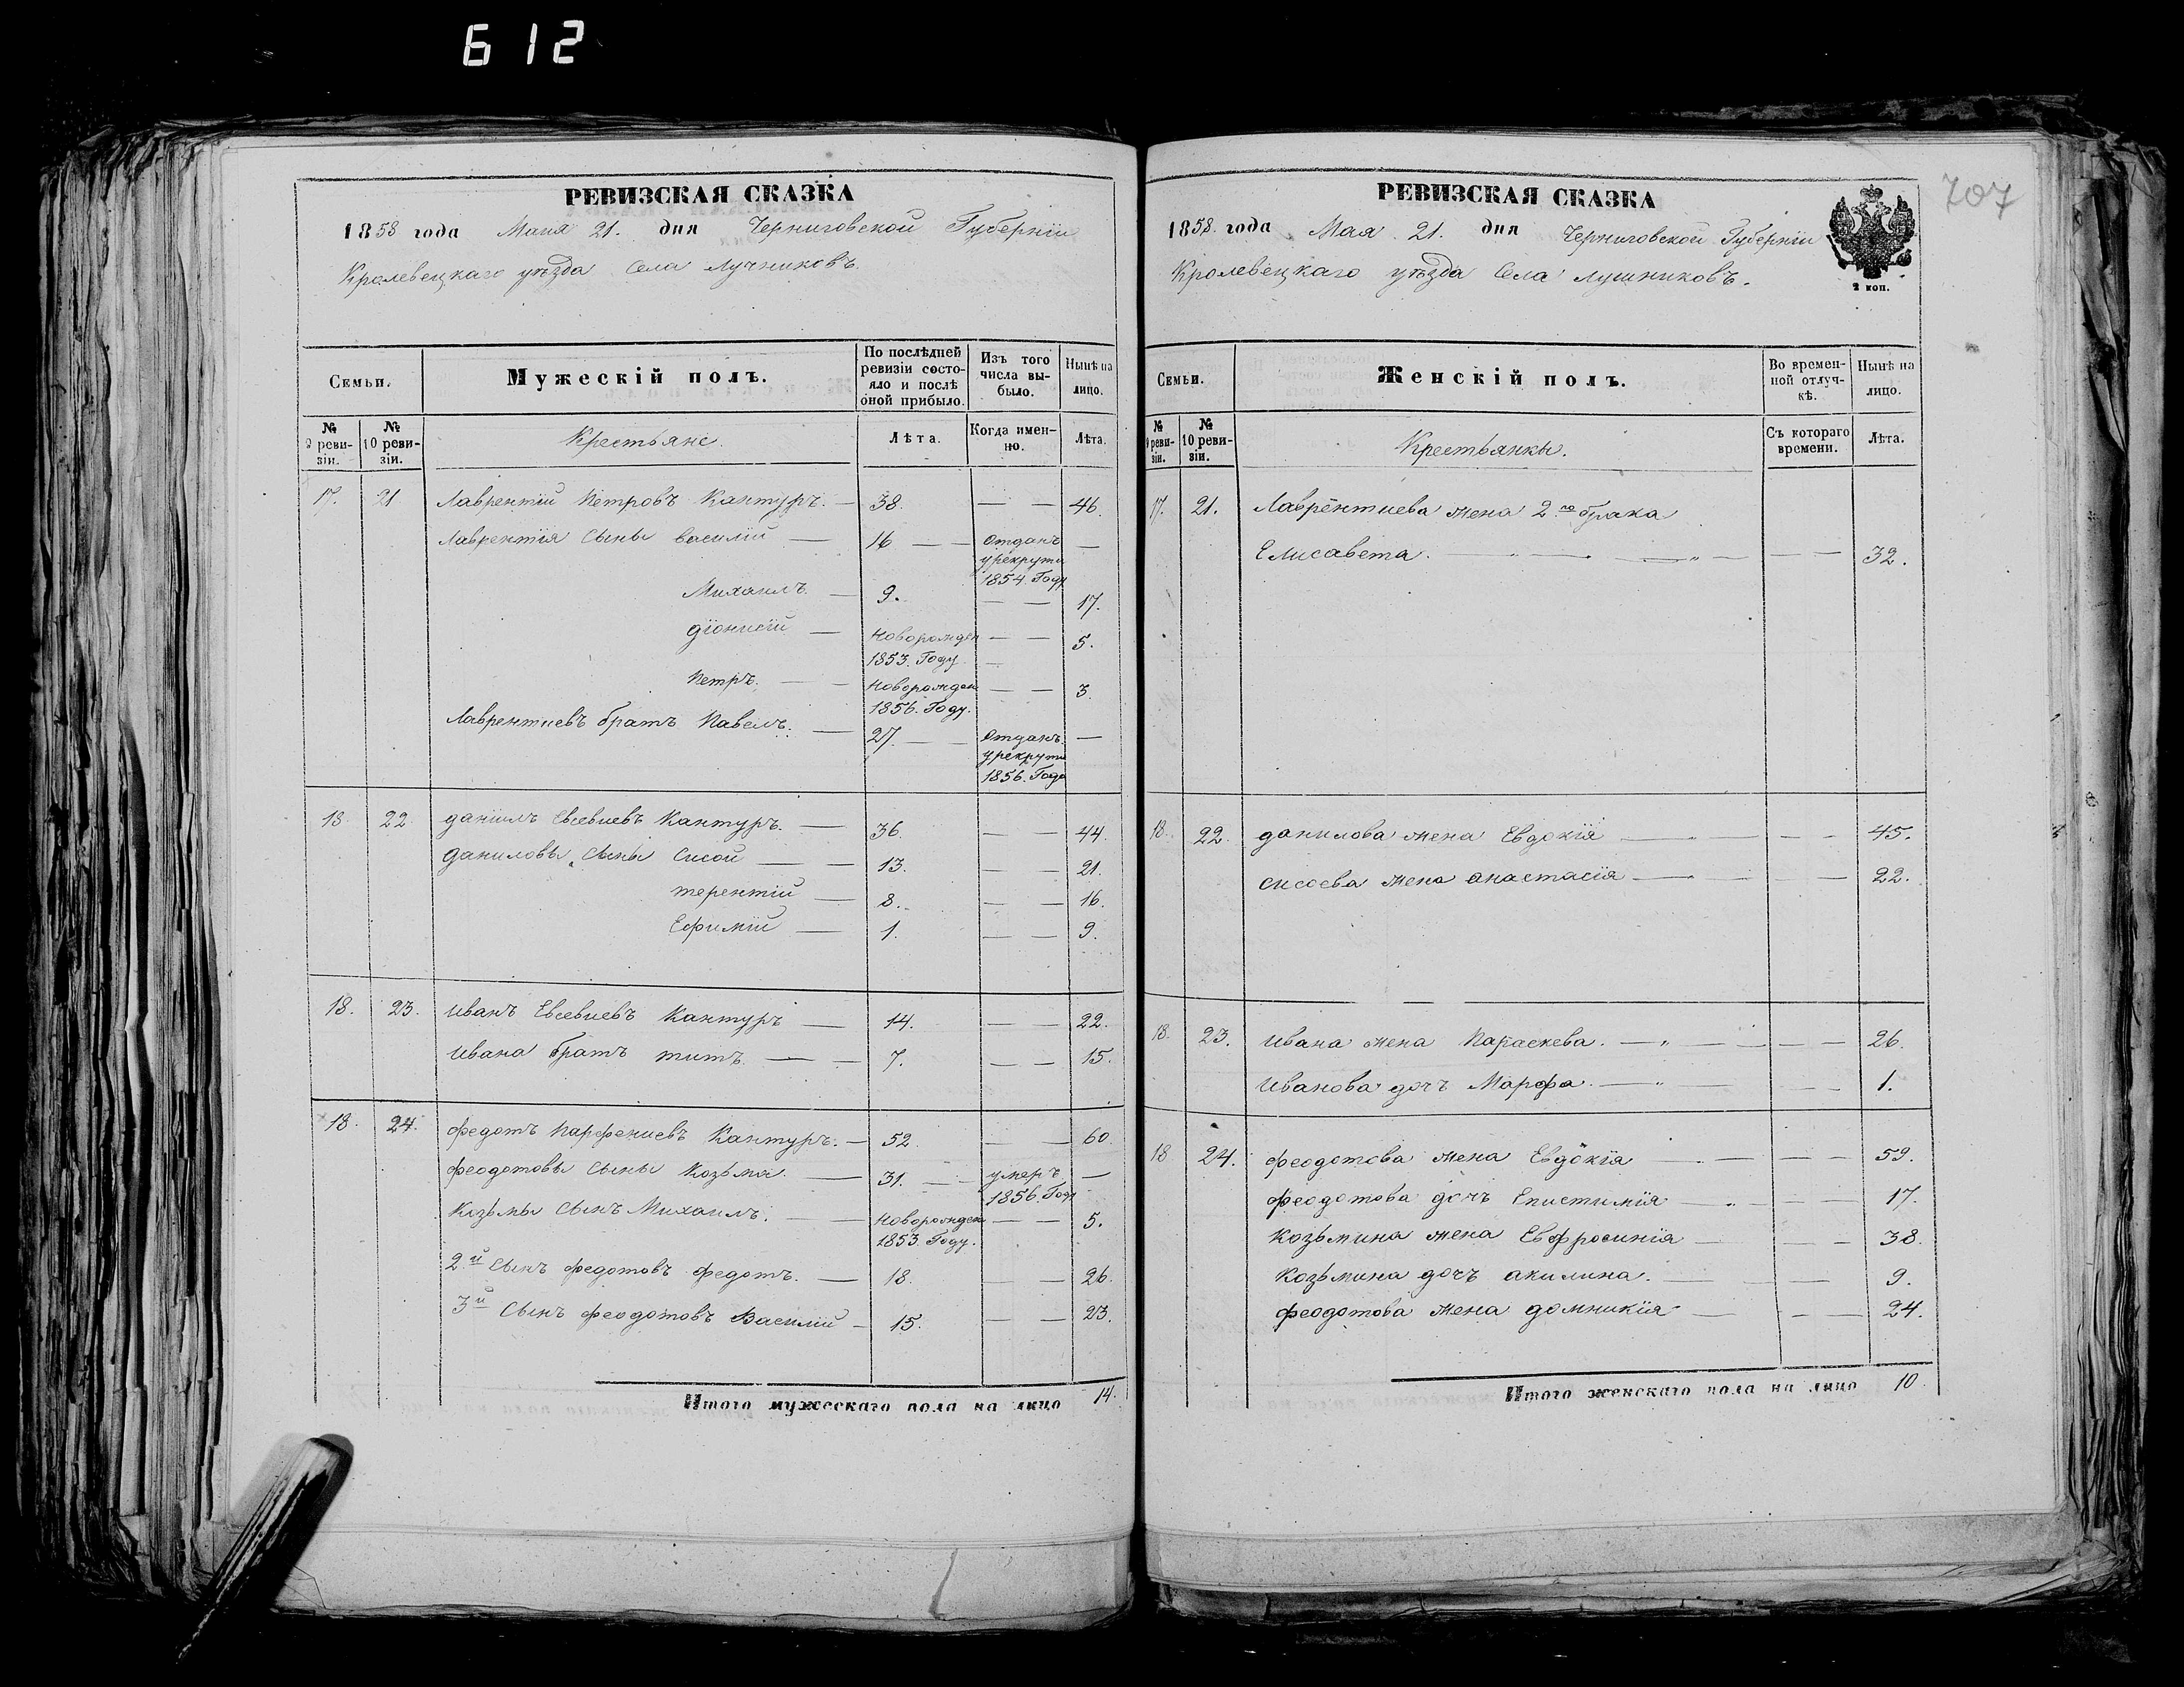 612
РЕВИЗСКАЯ СКАЗКА
1858 года Маия 21. дня Черниговской Губернiи
Кролевецкаго уѣзда Села Лучниковъ
Семьи.
Мужескiй полъ.
По послѣдней ревизiи состояло и послѣ оной прибыло.
Изъ того числа выбыло.
Нынѣ на лицо.
№ 9 ревизiи.
№ 10 ревизiи.
Крестьяне.
Лѣта.
Когда именно.
Лѣта.
17. 21 Лаврентiй Петровъ Кантуръ. — 38. — — 46.
Лаврентiя Сыны василiй — 16 — — Отданъ —
урекруты
1854. Году
Михаилъ — 9. — — 17.
дiонисiй — Новорожден — — 5.
1853. Году —
Петръ. — — Новорожден — — 3.
1856. Году.
Лаврентиевъ братъ Павелъ. — 27. — — Отданъ. —
урекруты
1856. Года
18. 22. данiилъ Евсевиевъ Кантуръ. — 36. — — 44.
даниловы Сыны Сисой — — 13. — — 21.
терентiй — 8. — — 16.
Ефимiй — 1. — — 9.
18. 23. Иванъ Евсевиевъ Кантуръ — 14. — — 22.
Ивана братъ титъ — — 7. — — 15.
18. 24. федотъ Парфениевъ Кантуръ. — 52. — — 60.
феодотовы Сыны Козьма — 31. — — умеръ —
1856. Году
Козьмы Сынъ Михаилъ. — — Новорожден — — 5.
1853. Году.
2й Сынъ федотовъ федотъ. — 18. — — 26.
3й Сынъ феодотовъ Василiй — 15. — — 23.
Итого мужескаго пола на лицо 14.
707
РЕВИЗСКАЯ СКАЗКА
1858. года Мая 21. дня Черниговской Губернiи
Кролевецкаго уѣзда Села Лушниковъ.
2 коп.
Семьи.
Женскiй полъ.
Во временной отлучкѣ.
Нынѣ на лицо.
№ 9 ревизiи.
№ 10 ревизiи.
Крестьянки.
Съ котораго времени.
Лѣта.
17. 21. Лаврентиева жена 2го брака
Елисавета. — — — — 32.
18. 22. данилова жена Евдокiя — — — 45.
сисоева жена анастасiя — — — 22.
18. 23. Ивана жена Параскева. — — — — 26.
Иванова дочъ Марфа. — — — 1.
18 24. феодотова жена Евдокiя — — — 59.
феодотова дочъ Епистимiя — — — 17.
Козьмина жена Евфросинiя — — — 38.
Козьмина дочъ акилина. — — — 9.
феодотова жена домникiя — — — 24.
Итого женскаго пола на лицо 10.